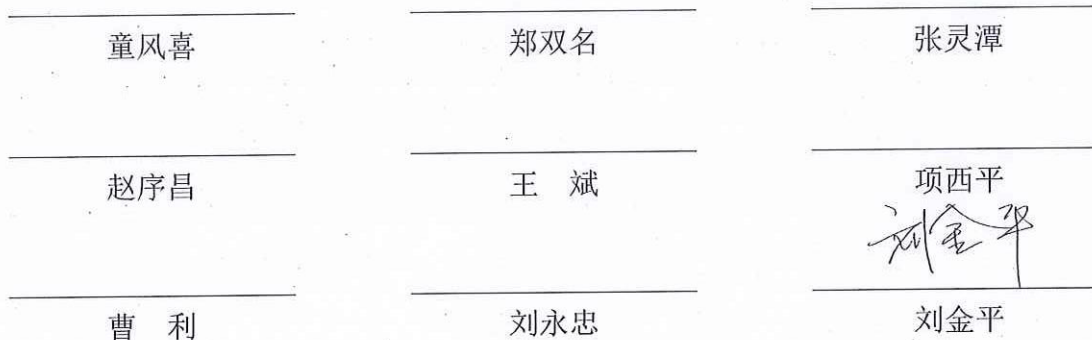 童风喜 郑双名 张灵潭
赵序昌 王 斌 项西平
刘金平
曹 利 刘永忠 刘金平